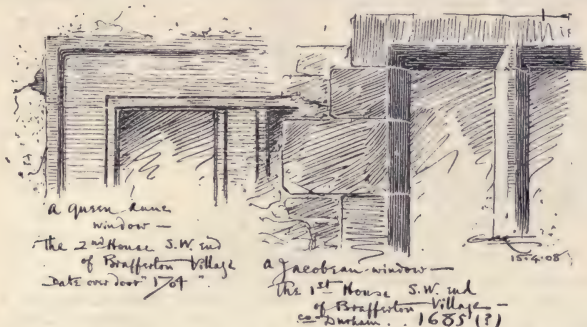 a Queen Anne
window —
the 2nd House S.W. end
of Brafferton Village
Date over door "1704"
a Jacobean window —
the 1st House S.W. end
of Brafferton Village —
co Durham. 1685 (?)
15.4.08